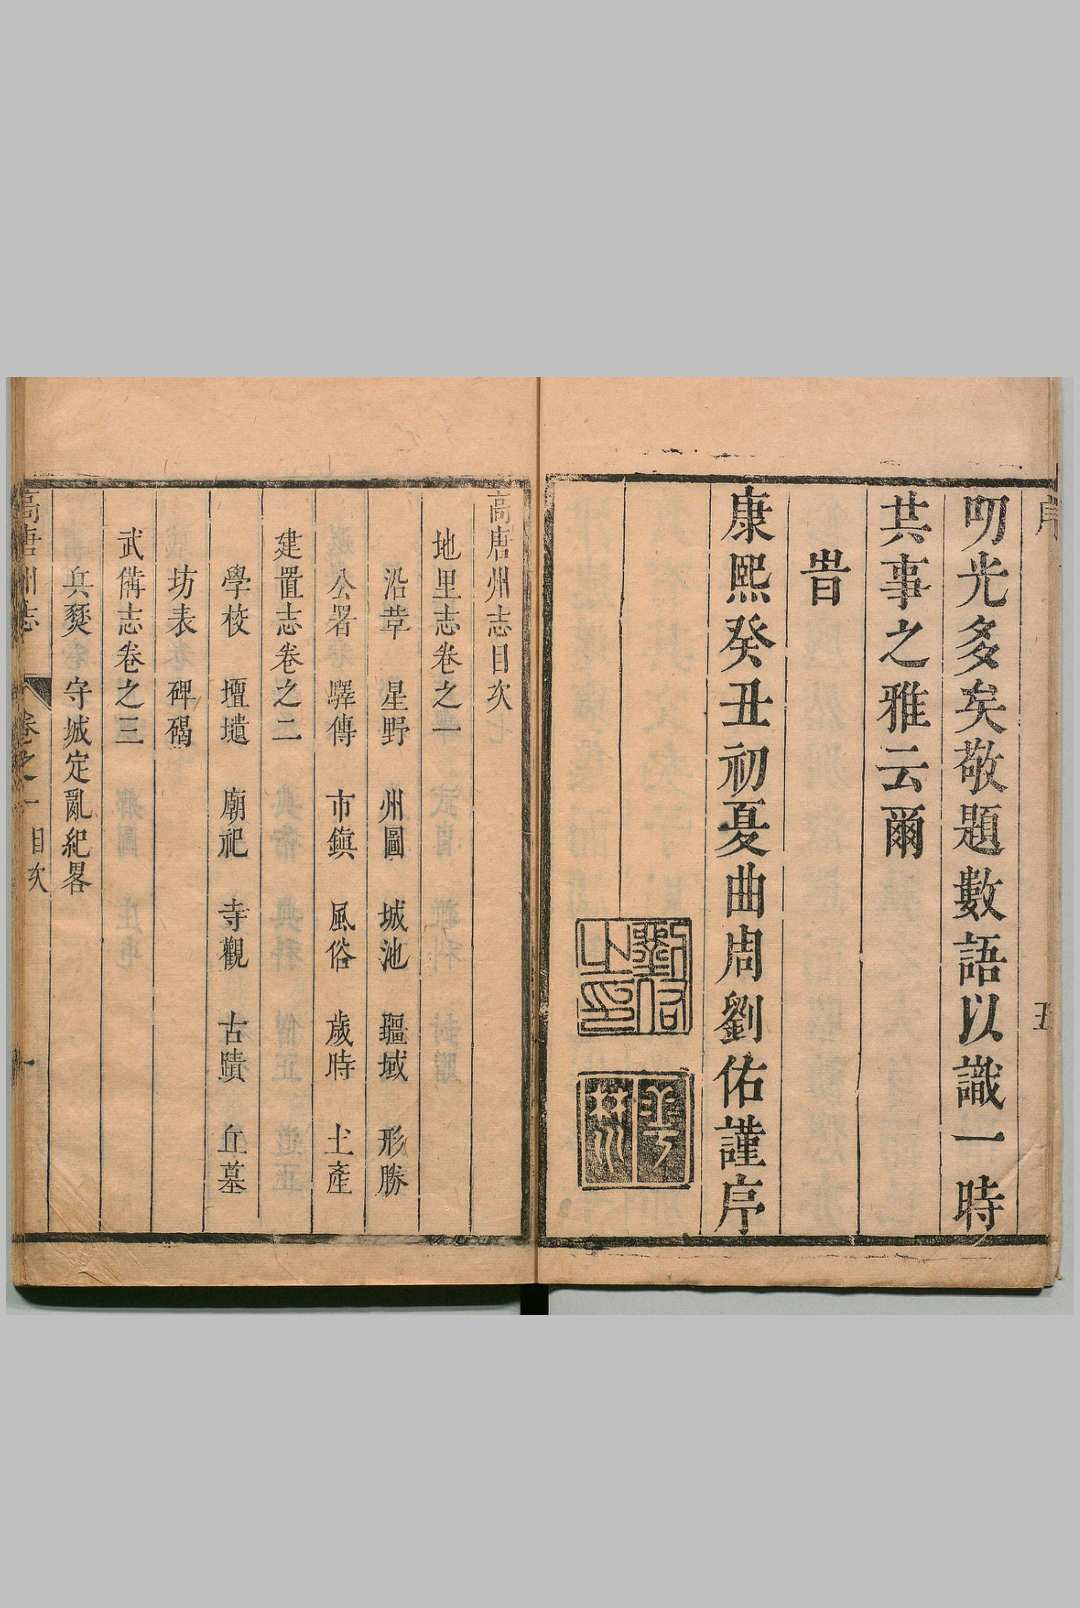 叨光多矣敬題數語以識一時
共事之雅云爾
旹
康熙癸丑初夏曲周劉佑謹序
劉佑之印
高唐州志目次
地里志卷之一
沿革 星野 州圖 城池 疆域 形勝
公署 驛傳 市鎮 風俗 歲時 土產
建置志卷之二
學校 壇壝 廟祀 寺觀 古蹟 丘墓
坊表 碑碣
武備志卷之三
兵燹 守城定亂紀畧
高唐州志 卷之一 目次 一